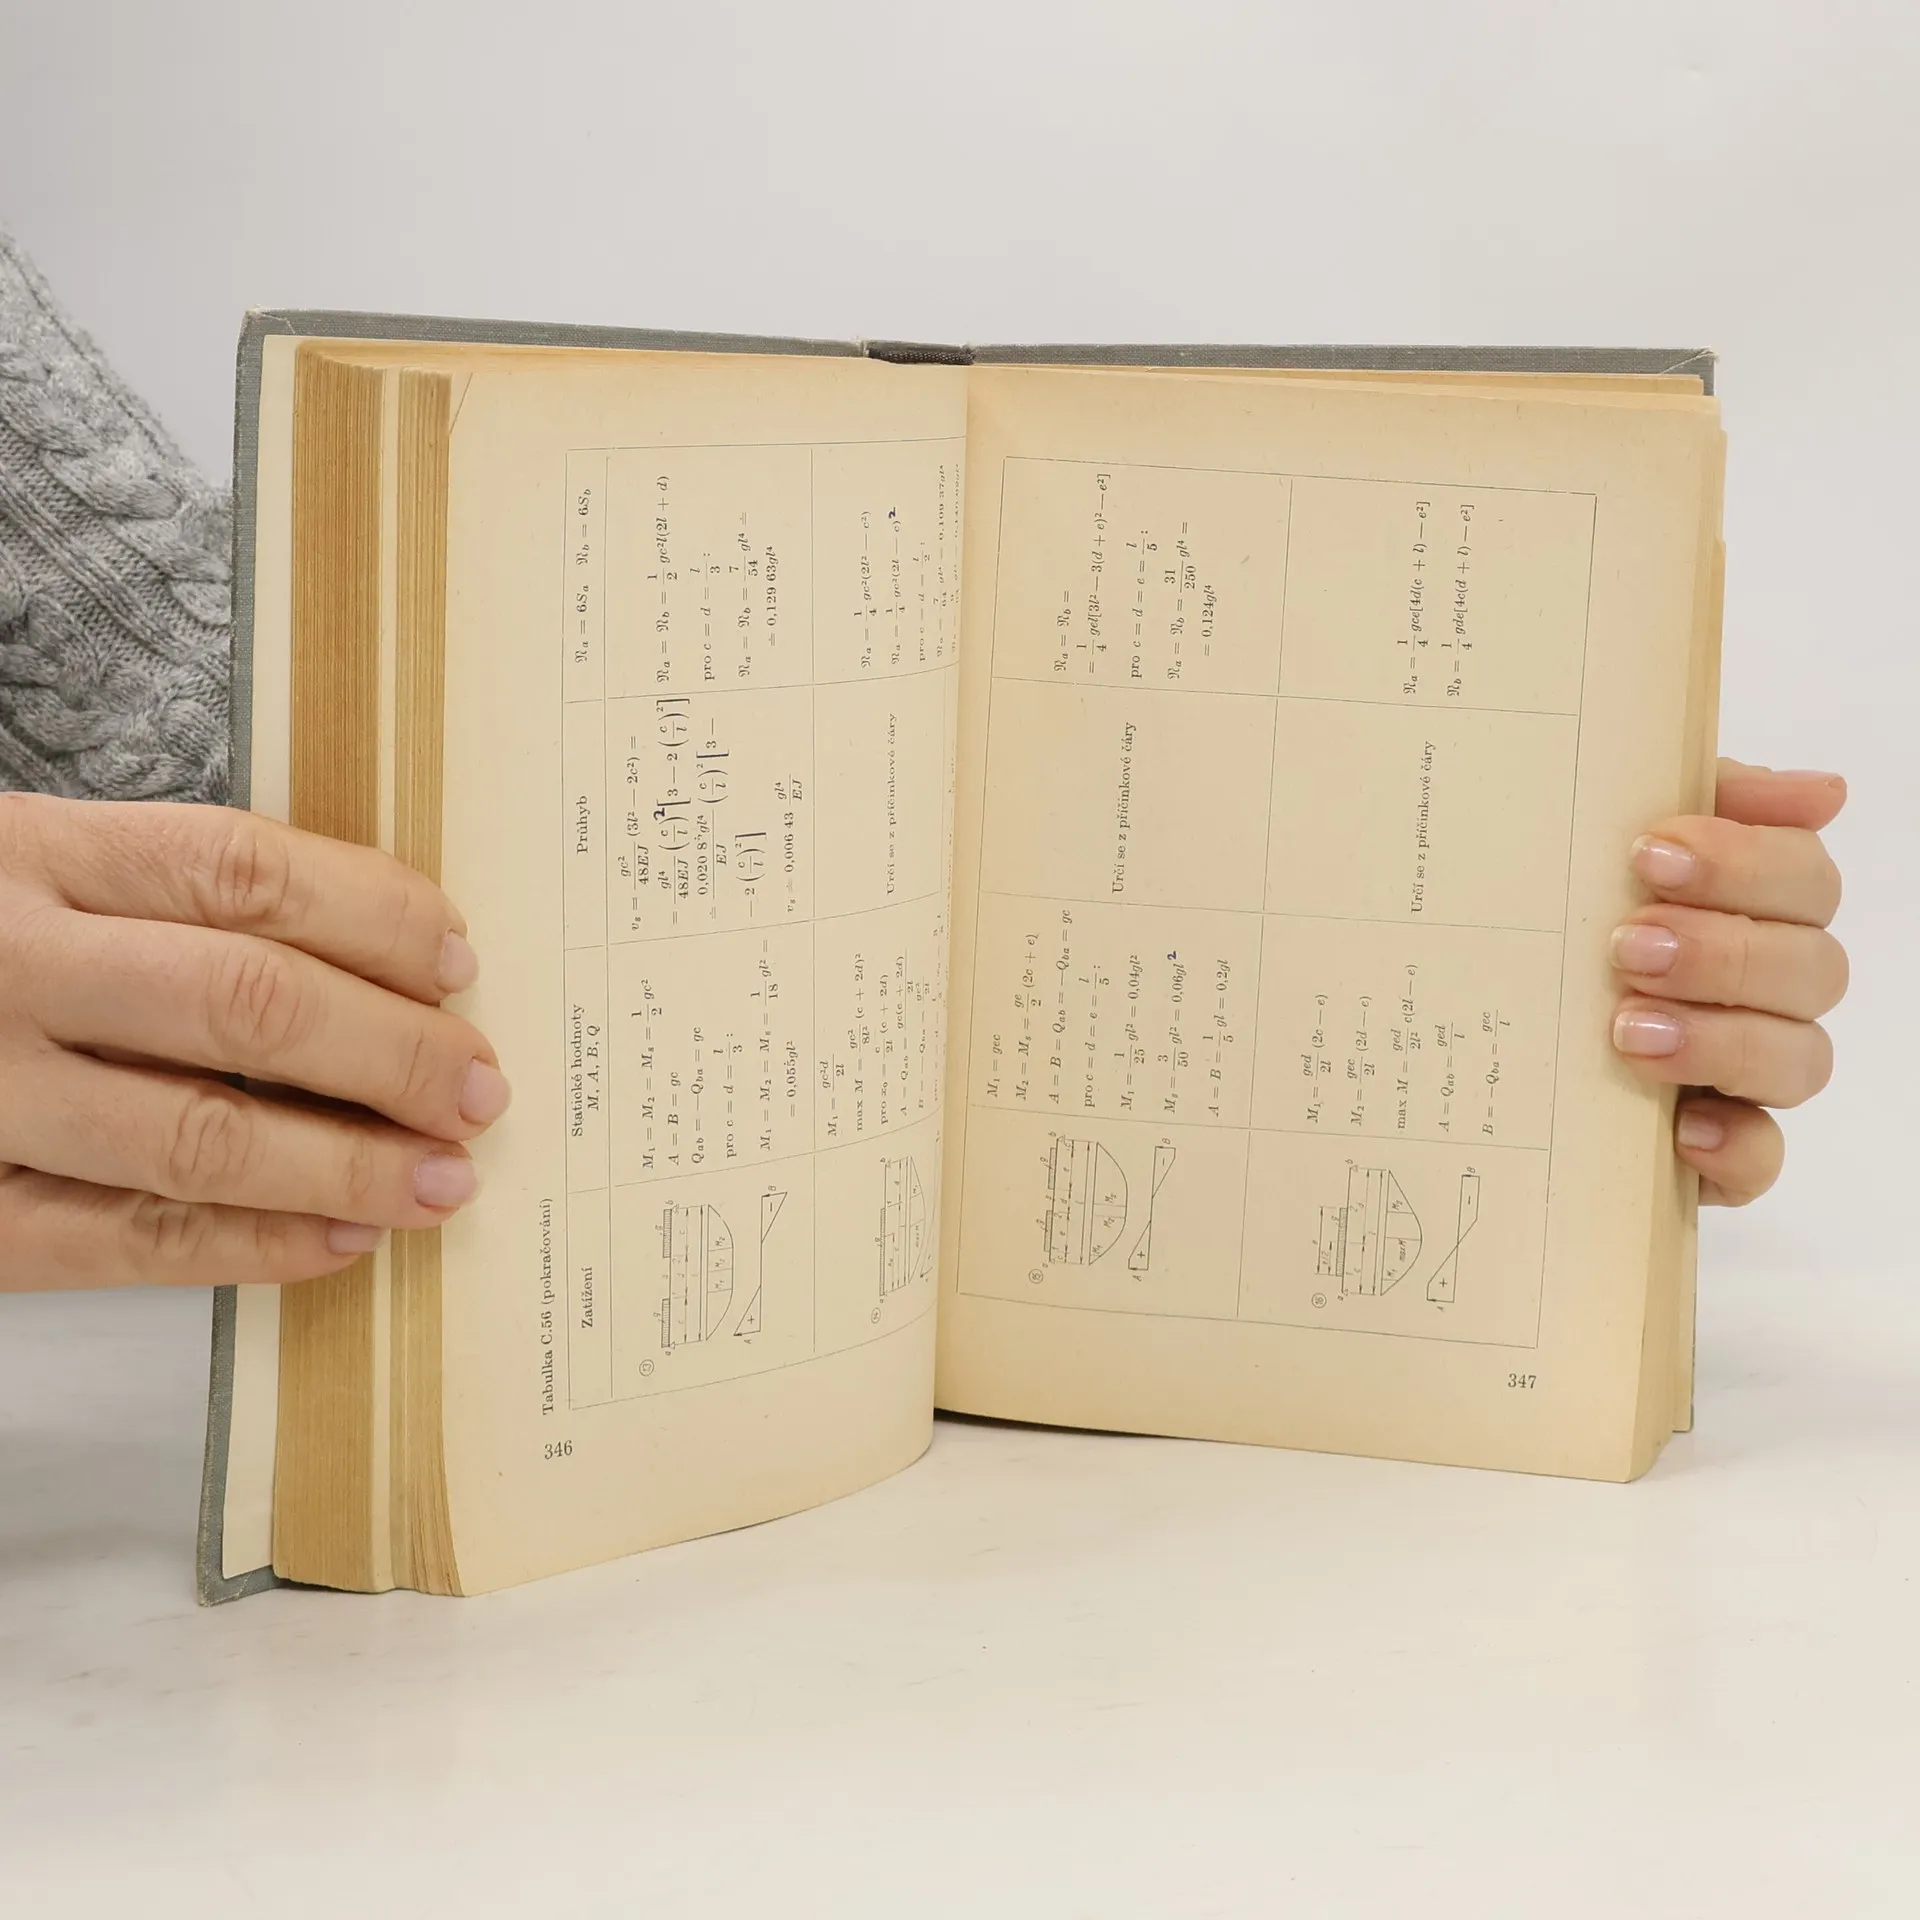 346
Tabulka C.56 (pokračování)
Zatížení
Statické hodnoty
M, A, B, Q
Průhyb
𝔑a = 6Sa 𝔑b = 6Sb
13
M1 = M2 = Ms = 1/2 gc²
A = B = gc
Qab = −Qba = gc
pro c = d = l/3 :
M1 = M2 = Ms = 1/18 gl² =
= 0,055gl²
vs = gc²/48EJ (3l² − 2c²) =
= gl⁴/48EJ (c/l)² [3 − 2 (c/l)²]
≐ 0,020 8 gl⁴/EJ (c/l)² [3 −
− 2 (c/l)²]
vs ≐ 0,006 43 gl⁴/EJ
𝔑a = 𝔑b = 1/2 gc²l(2l + d)
pro c = d = l/3 :
𝔑a = 𝔑b = 7/54 gl⁴ ≐
≐ 0,129 63gl⁴
14
M1 = gc²d/2l
max M = gc²/8l² (c + 2d)²
pro x0 = c/2l (c + 2d)
A = Qab = gc(c + 2d)/2l
B = −Qba = gc²/2l
Určí se z příčinkové čáry
𝔑a = 1/4 gc²(2l² − c²)
𝔑a = 1/4 gc²(2l − c)²
pro c = d = l/2 :
15
M1 = gec
M2 = Ms = ge/2 (2c + e)
A = B = Qab = −Qba = gc
pro c = d = e = l/5 :
M1 = 1/25 gl² = 0,04gl²
Ms = 3/50 gl² = 0,06gl²
A = B = 1/5 gl = 0,2gl
Určí se z příčinkové čáry
𝔑a = 𝔑b =
= 1/4 gel[3l² − 3(d + e)² − e²]
pro c = d = e = l/5 :
𝔑a = 𝔑b = 31/250 gl⁴ =
= 0,124gl⁴
16
M1 = ged/2l (2c − e)
M2 = gec/2l (2d − e)
max M = ged/2l² c(2l − e)
A = Qab = ged/l
B = −Qba = gec/l
Určí se z příčinkové čáry
𝔑a = 1/4 gce[4d(c + l) − e²]
𝔑b = 1/4 gde[4c(d + l) − e²]
347